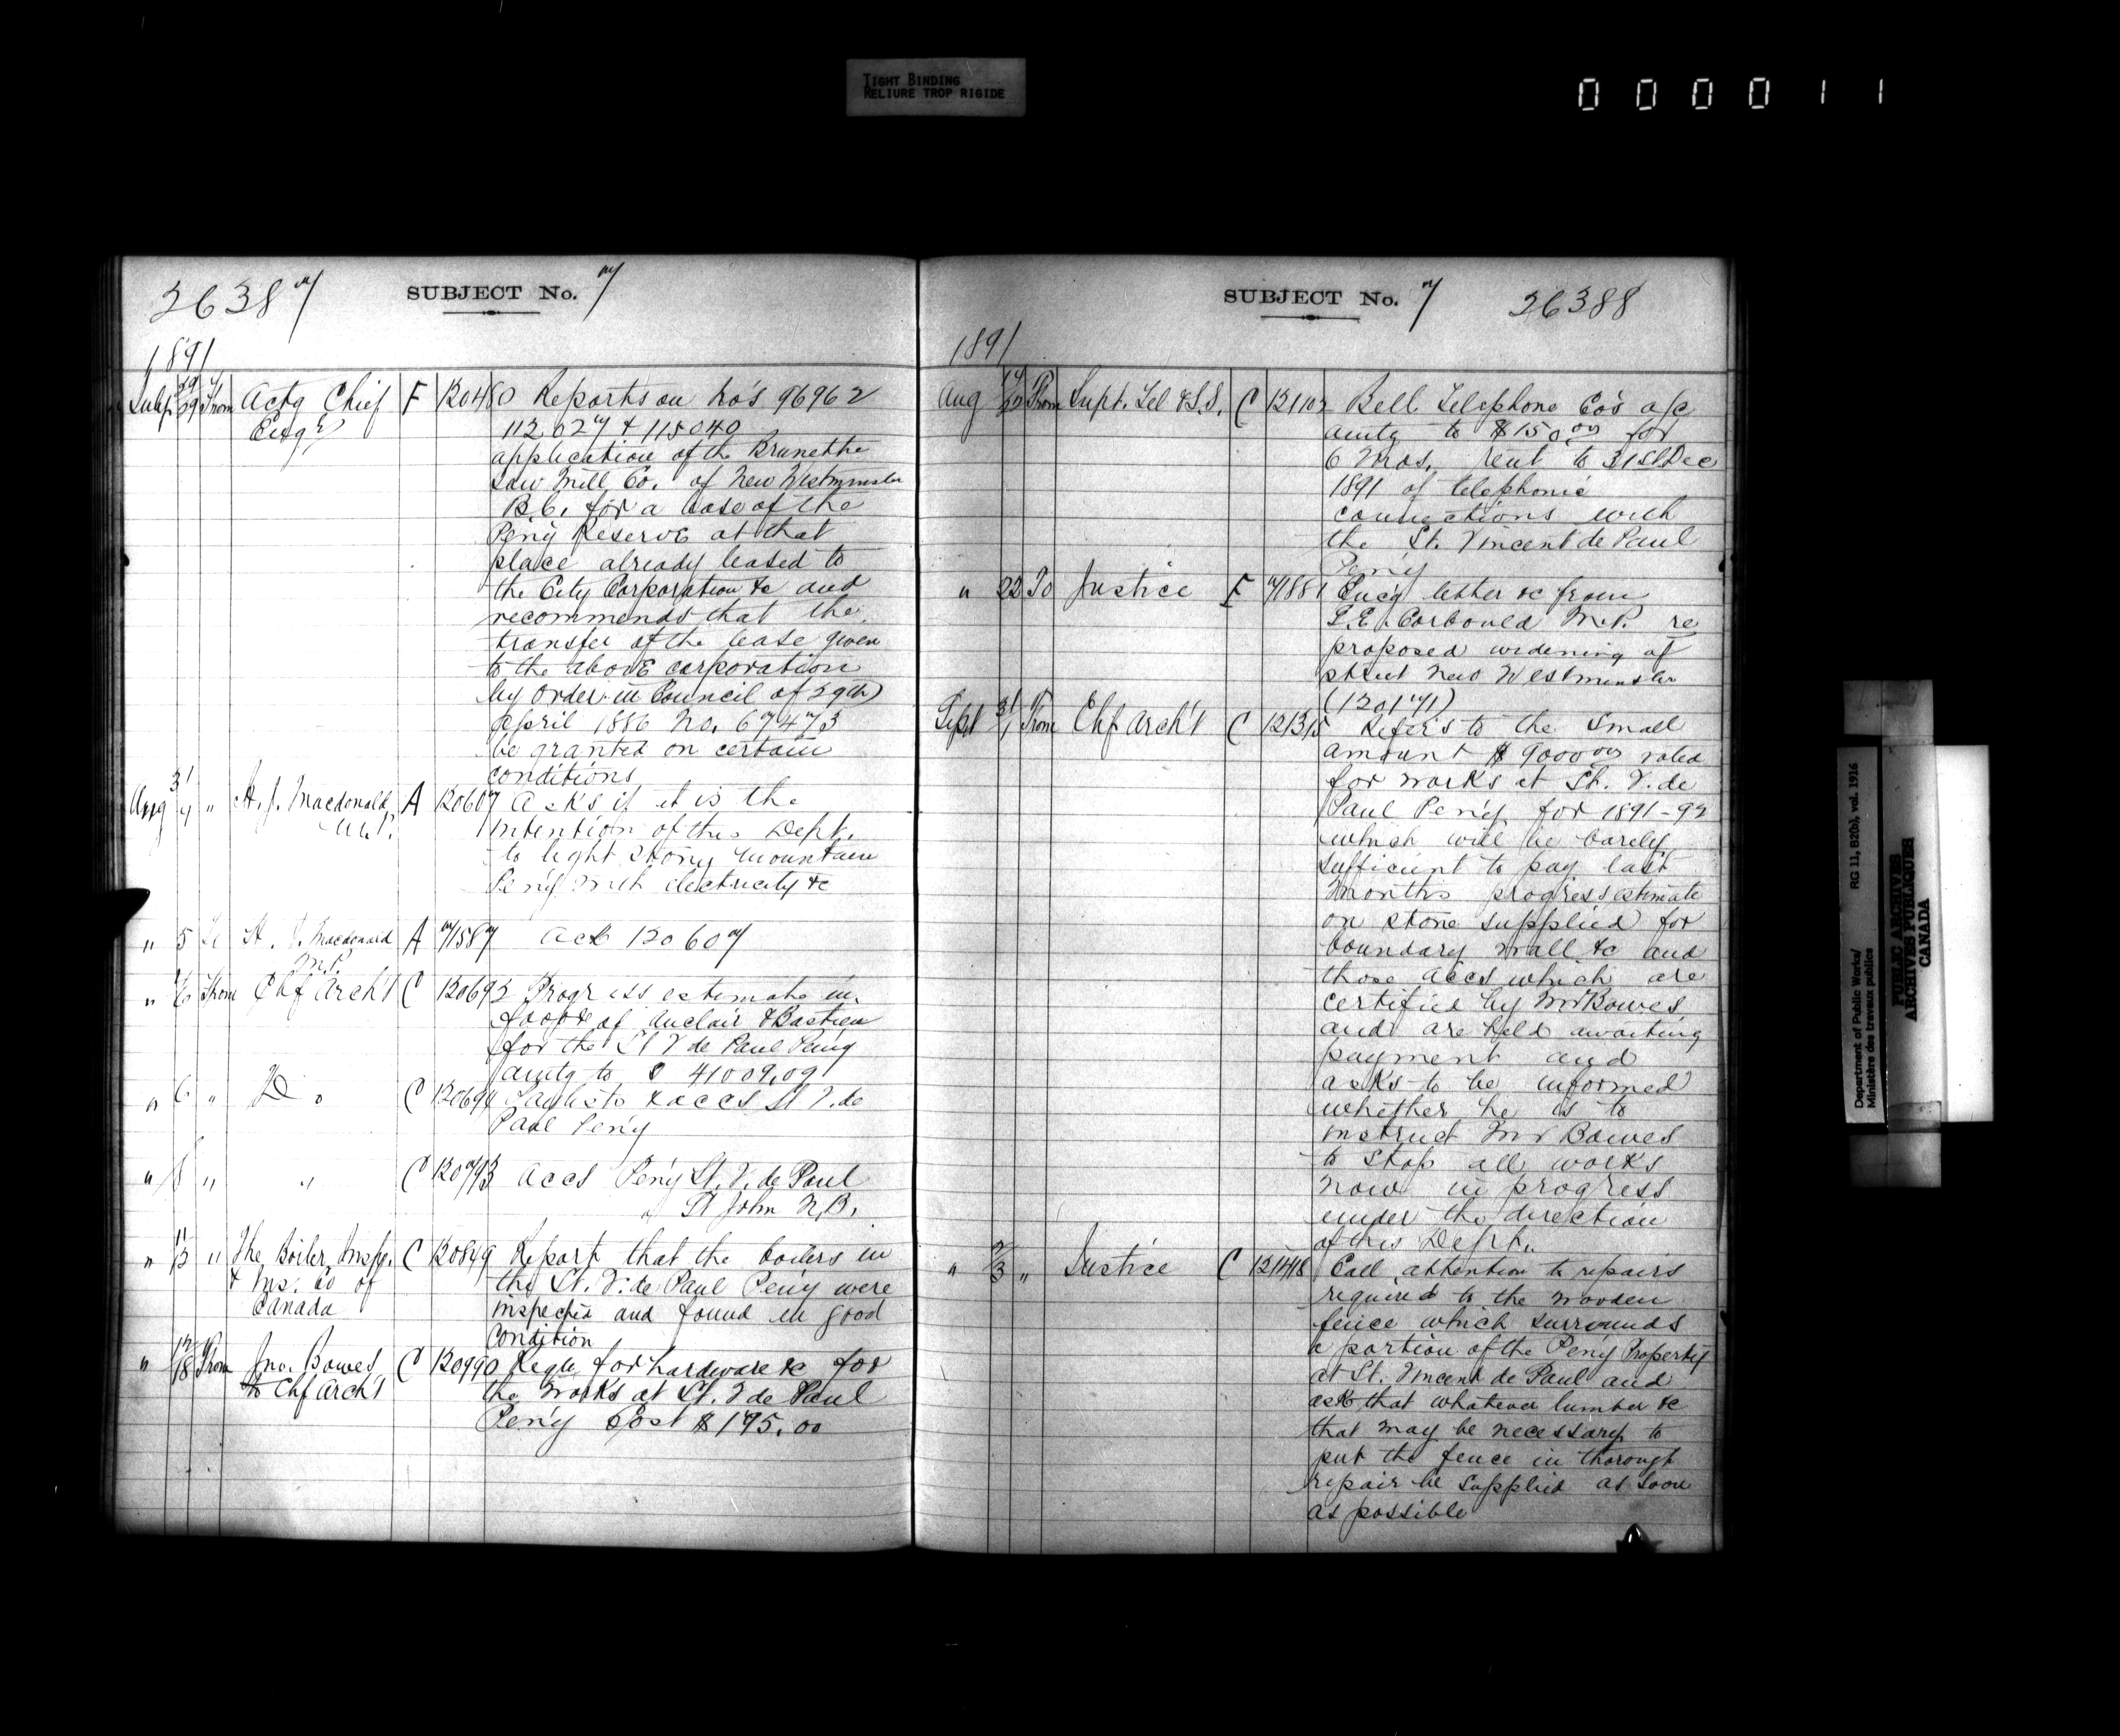 TIGHT BINDING
RELIURE TROP RIGIDE
000011
26387
SUBJECT No. 7
1891
July 29/29 From Actg Chief F 120480 Reports on No's 96962
Engr 112027 & 115040
application of the Brunette
Saw Mill Co. of New Westminster
B.C. for a lease of the
Pen'y Reserve at that
place already leased to
the City Corporation &c and
recommends that the
transfer of the lease given
to the above corporation
by Order in Council of 29th
April 1886 No. 67473
be granted on certain
conditions
Aug 31/4 " H. J. Macdonald A 120607 Asks if it is the
M.P. intention of this Dept.
to light Stony Mountain
Pen'y with electricity &c
" 5 To H. J. Macdonald A 71587 Ack 120607
M.P.
" 6 From Chf Arch't C 120693 Progress estimate in
favor of Auclair & Bastien
for the St V de Paul Peny
amtg to $ 41009.09
" 6 " Do C 120694 Paylists & accs St V. de
Paul Pen'y
" 8 " " C 120793 Accs Pen'y St. V. de Paul
" St John N.B.
" 11/13 " The Boiler Inspc. C 120849 Report that the boilers in
& Ins. Co of the St. V. de Paul Pen'y were
Canada inspected and found in good
condition
" 17/18 From Jno. Bowes C 120990 Requ for hardware &c for
to Chf Arch't the works at St. V de Paul
Pen'y Cost $195.00
SUBJECT No. 7 26388
1891
Aug 19/20 From Supt. Tel & S.S. C 121103 Bell Telephone Co's a/c
amtg to $150.00 for
6 Mos. rent to 31st Dec
1891 of telephonic
connections with
the St. Vincent de Paul
Pen'y
" 22 To Justice F 71881 Enc'g letter &c from
G.E. Corbould M.P. re
proposed widening of
street New Westminster
(120171)
Sept 31/1 From Chf Arch't C 121315 Refers to the small
amount $9000.00 voted
for works at St. V. de
Paul Pen'y for 1891-92
which will be barely
sufficient to pay last
months progress estimate
on stone supplied for
boundary wall &c and
those accs which are
certified by Mr Bowes
and are held awaiting
payment and
asks to be informed
whether he is to
instruct Mr Bowes
to stop all works
now in progress
under the direction
of this Dept.
" 2/3 " Justice C 121418 Call attention to repairs
required to the wooden
fence which surrounds
a portion of the Pen'y Property
at St. Vincent de Paul and
ask that whatever lumber &c
that may be necessary to
put the fence in thorough
repair be supplied as soon
as possible
Department of Public Works/ RG 11, B2(b), vol. 1916
Ministère des travaux publics
PUBLIC ARCHIVES
ARCHIVES PUBLIQUES
CANADA